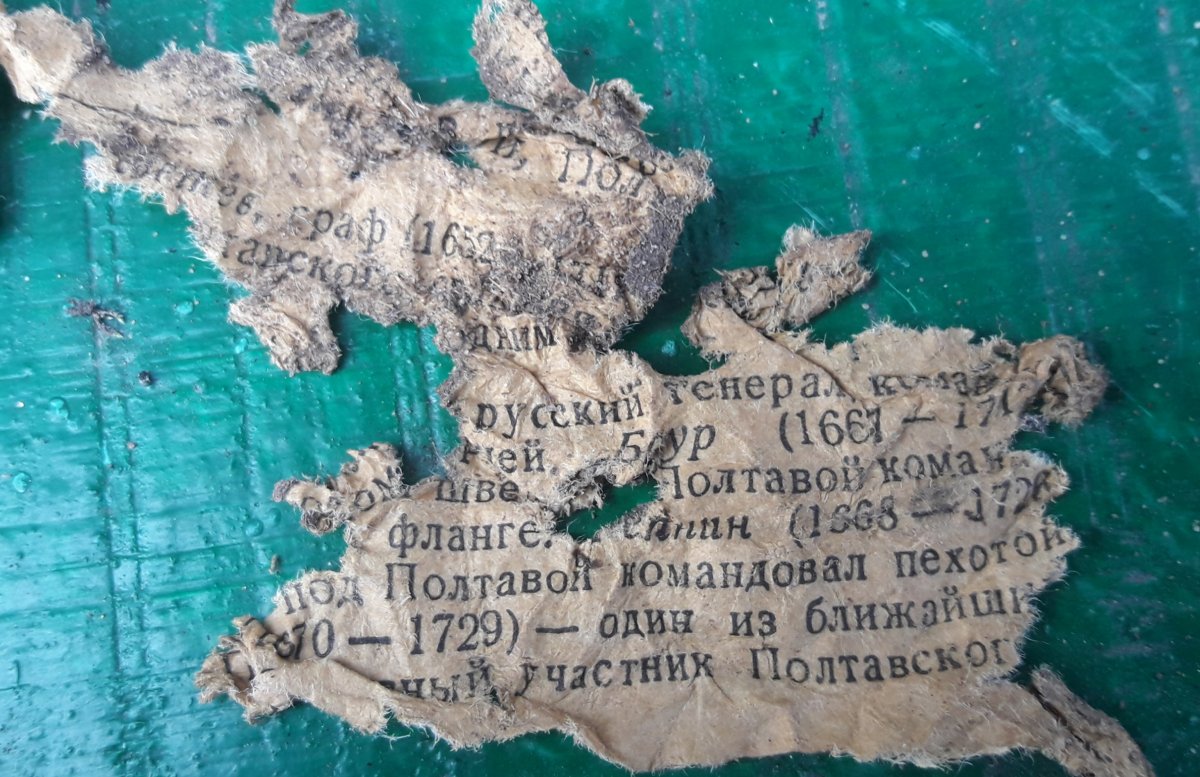 в, Пол
граф (1652
тавског
одним
русский генерал коман
ней. Боур (1667 — 17
ом шве Полтавой коман
фланге. епнин (1668 — 1726
под Полтавой командовал пехотой
70 — 1729) — один из ближайши
вный участник Полтавског